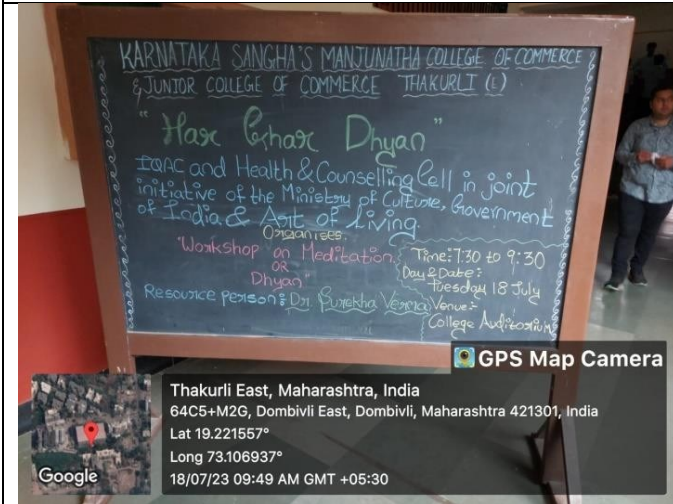 KARNATAKA SANGHA'S MANJUNATHA COLLEGE OF COMMERCE
& JUNIOR COLLEGE OF COMMERCE THAKURLI (E)
"Har Ghar Dhyan"
IQAC and Health & Counselling Cell in joint
initiative of the Ministry of Culture, Government
of India & Art of Living.
Organises.
"Workshop on Meditation
OR
Dhyan"
Resource person: Dr. Surekha Verma
Time: 7:30 to 9:30
Day & Date:
Tuesday 18 July
Venue:-
College Auditorium
GPS Map Camera
Google
Thakurli East, Maharashtra, India
64C5+M2G, Dombivli East, Dombivli, Maharashtra 421301, India
Lat 19.221557°
Long 73.106937°
18/07/23 09:49 AM GMT +05:30